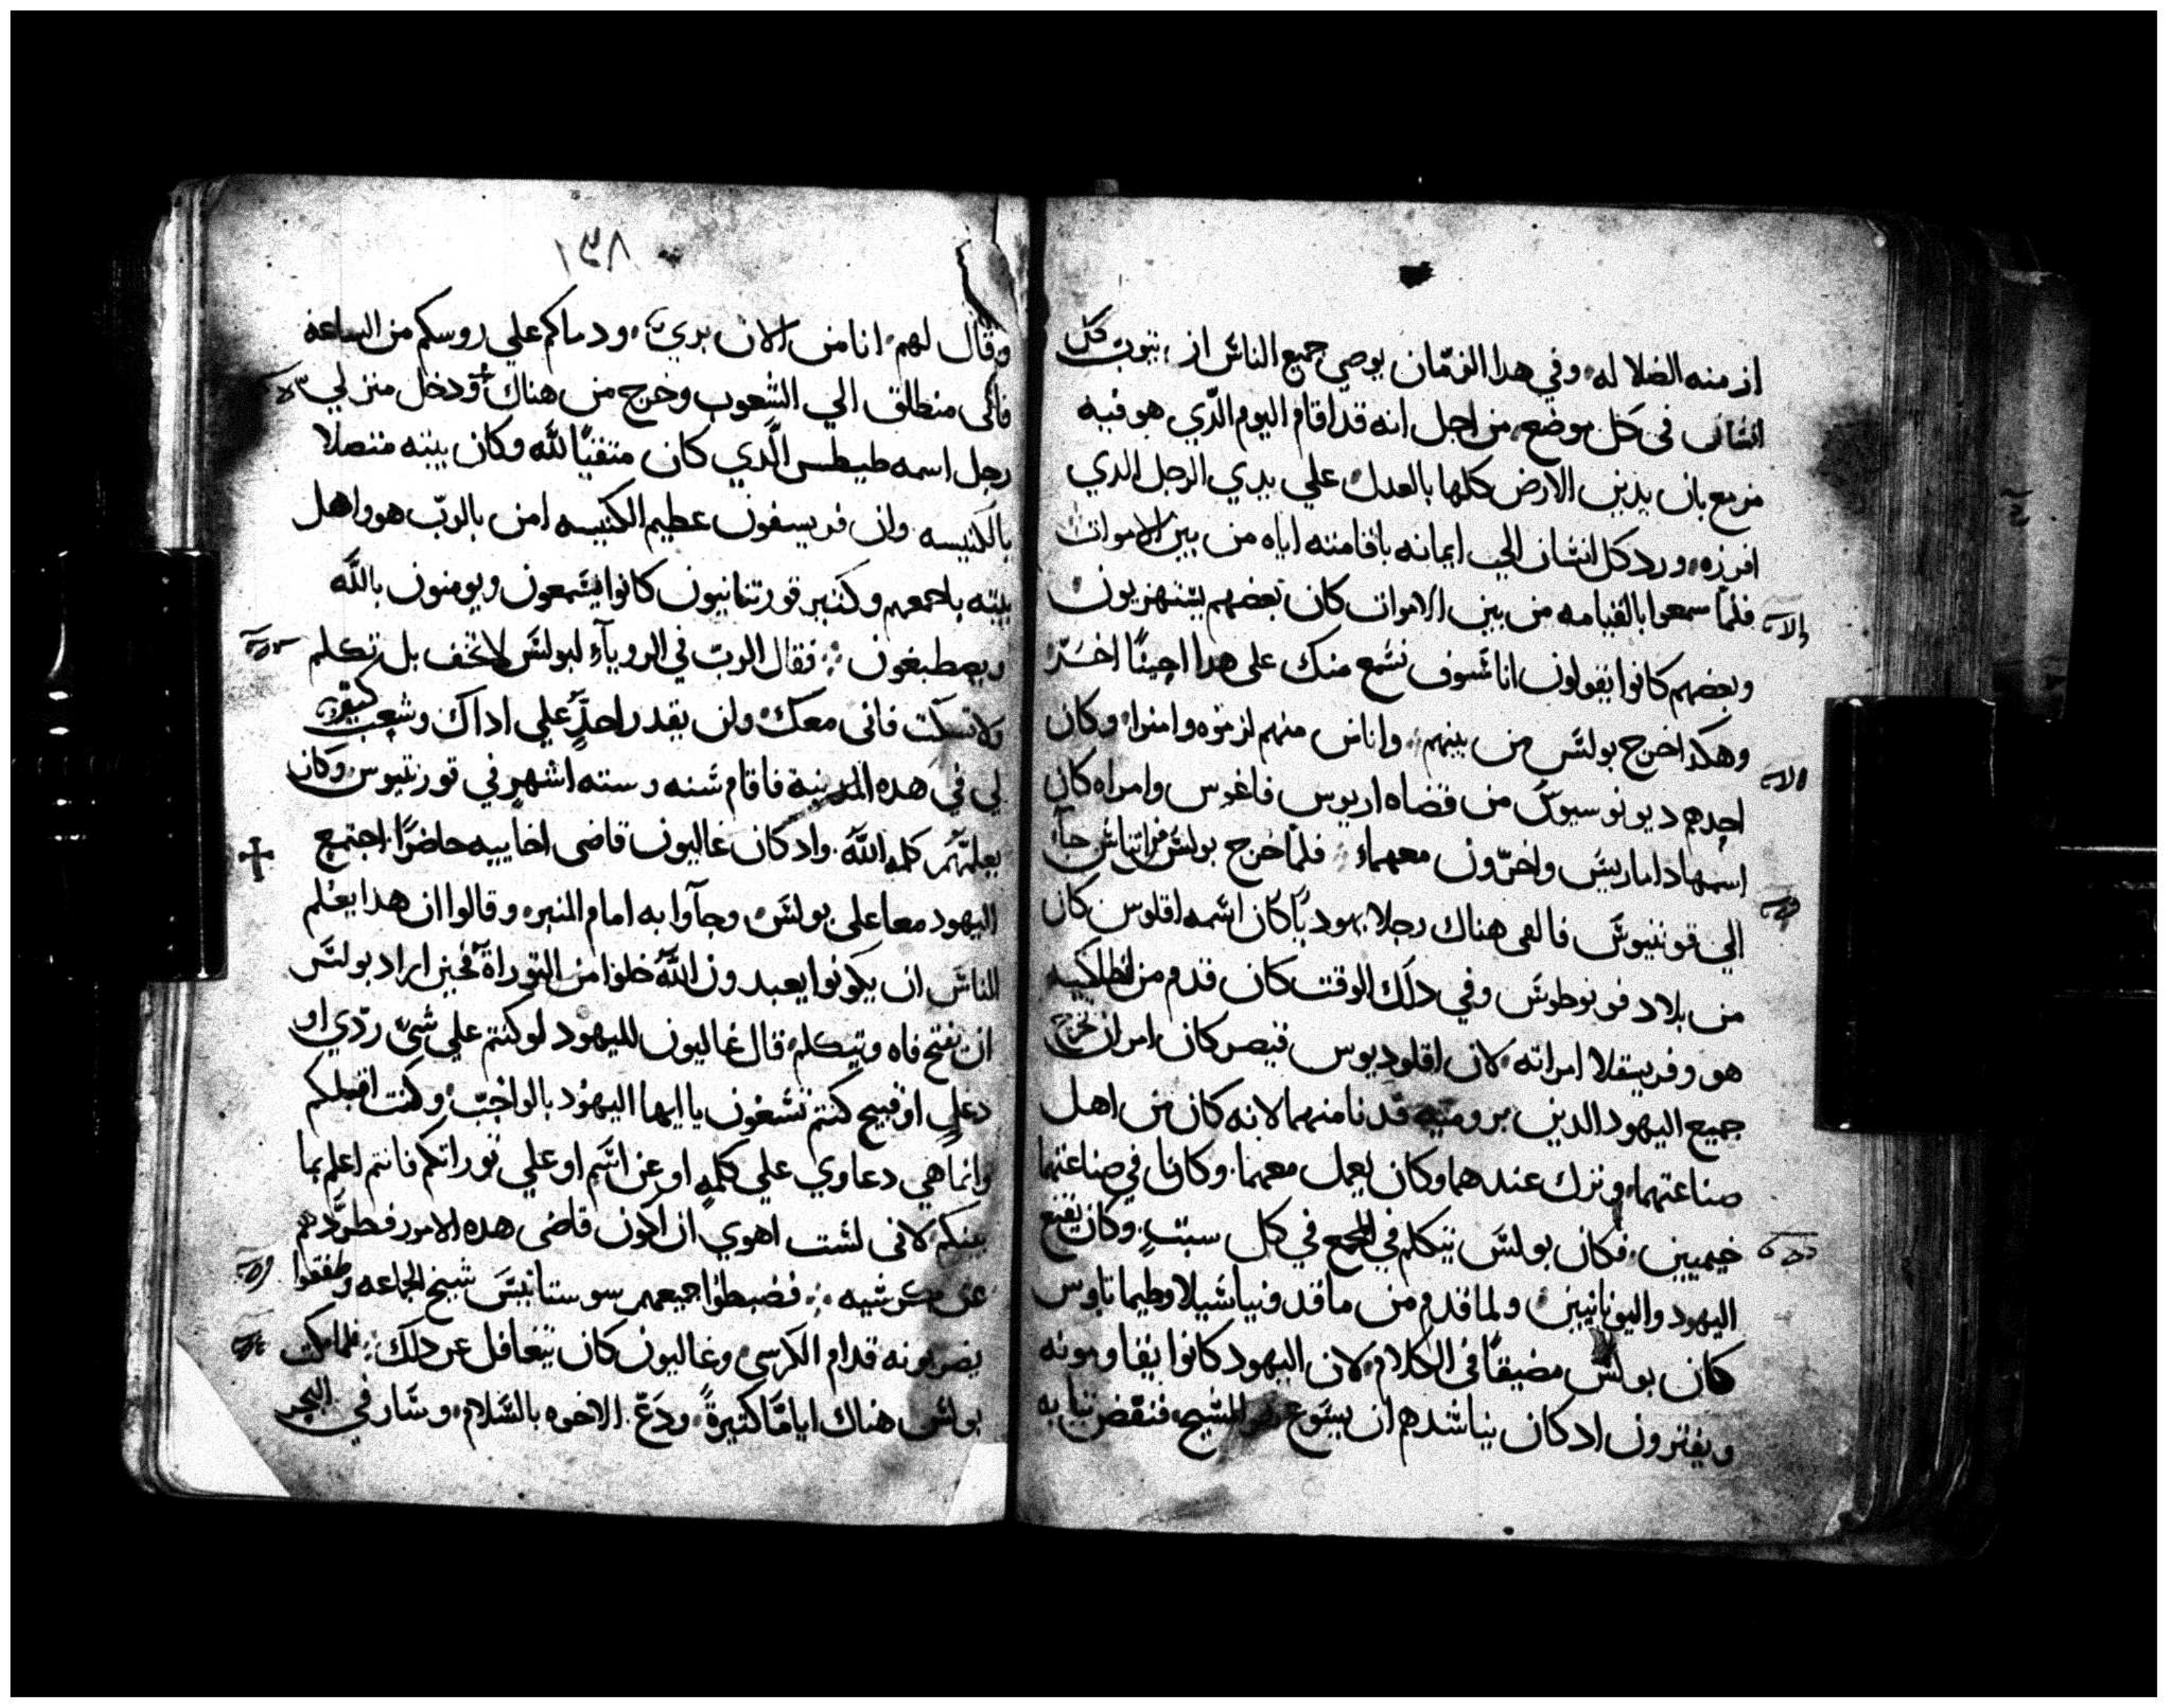 ازمنه الضلاله، وفي هدا الزمان يوصي جميع الناس ان يتوب كل
انسان في كل موضع، من اجل انه قد اقام اليوم الدي هو فيه
مزمع بان يدين الارض كلها بالعدل علي يدي الرجل الدي
افرزه، ورد كل انسان الي ايمانه باقامته اياه من بين الاموات
فلما سمعوا بالقيامه من بين الاموات كان بعضهم يستهزيون
وبعضهم كانوا يقولون انا سوف نسمع منك على هدا احينًا اخر
وهكدا خرج بولس من بينهم، واناس منهم لزموه وامنوا، وكان
احدهم ديونوسيوس من قضاه اريوس فاغوس وامراه كان
اسمها داماريس واخرون معهما، فلما خرج بولس من اتناس جآ
الي قورنتيوس فالفى هناك رجلا يهوديًا كان اسمه اقلوس كان
من بلاد فونوطوس وفي دلك الوقت كان قدم من انطاكيه
هو وفريسقلا امراته، لان اقلوديوس قيصر كان امر ان يخرج
جميع اليهود الدين بروميه فدنا منهما لانه كان من اهل
صناعتهما، ونزل عندهما وكان يعمل معهما، وكانا في صناعتهما
خيميين، فكان بولس يتكلم في المجمع في كل سبت، وكان يقنع
اليهود واليونانيين، ولما قدم من ماقدونيا شيلا وطيماتاوس
كان بولس مضيقًا في الكلام، لان اليهود كانوا يقاومونه
ويفترون اد كان يناشدهم ان يسوع هو المسيح، فنفض ثيابه
١٣٨
وقال لهم، انا من الان بري، ودماكم علي روسكم من الساعه
فاني منطلق الي الشعوب وخرج من هناك ودخل منزل
رجل اسمه طيطس الدي كان متقيًا لله وكان بيته متصلا
بالكنيسه وان فريسفون عظيم الكنيسه امن بالرب هو واهل
بيته باجمعهم وكثير قورنتانيون كانوا يسمعون ويومنون بالله
ويصطبغون، فقال الرب في الروياء لبولس لا تخف بل تكلم
ولا تسكت فاني معك، ولن يقدر احد علي اداك وشعب كثير
لي في هده المدينة فاقام سنه وسته اشهر في قورنتيوس وكان
يعلمهم كلمه الله. واد كان غاليون قاضي اخاييه حاضرًا، اجتمع
اليهود معا علي بولس، وجآوا به امام المنبر، وقالوا ان هدا يعلم
الناس ان يكونوا يعبدون الله خلوا من التوراة، فحين اراد بولس
ان يفتح فاه ويتكلم، قال غاليون لليهود لو كنتم علي شي ردي او
دغل او قبيح كنتم تسعون يا ايها اليهود بالواجب، وكنت اقبلكم
وانما هي دعاوي علي كلمه او عن اسم او علي توراتكم فانتم اعلم بما
بينكم لاني لست اهوي ان اكون قاضي هده الامور فطردهم
عن كرسيه، فضبطوا جميعهم سوستانيس شيخ الجماعه وطفقوا
يضربونه قدام الكرسي، وغاليون كان يتغافل عن دلك، فلما مكت
بولس هناك ايامًا كثيرةً، ودع الاخوه بالسلام، وسار في البحر